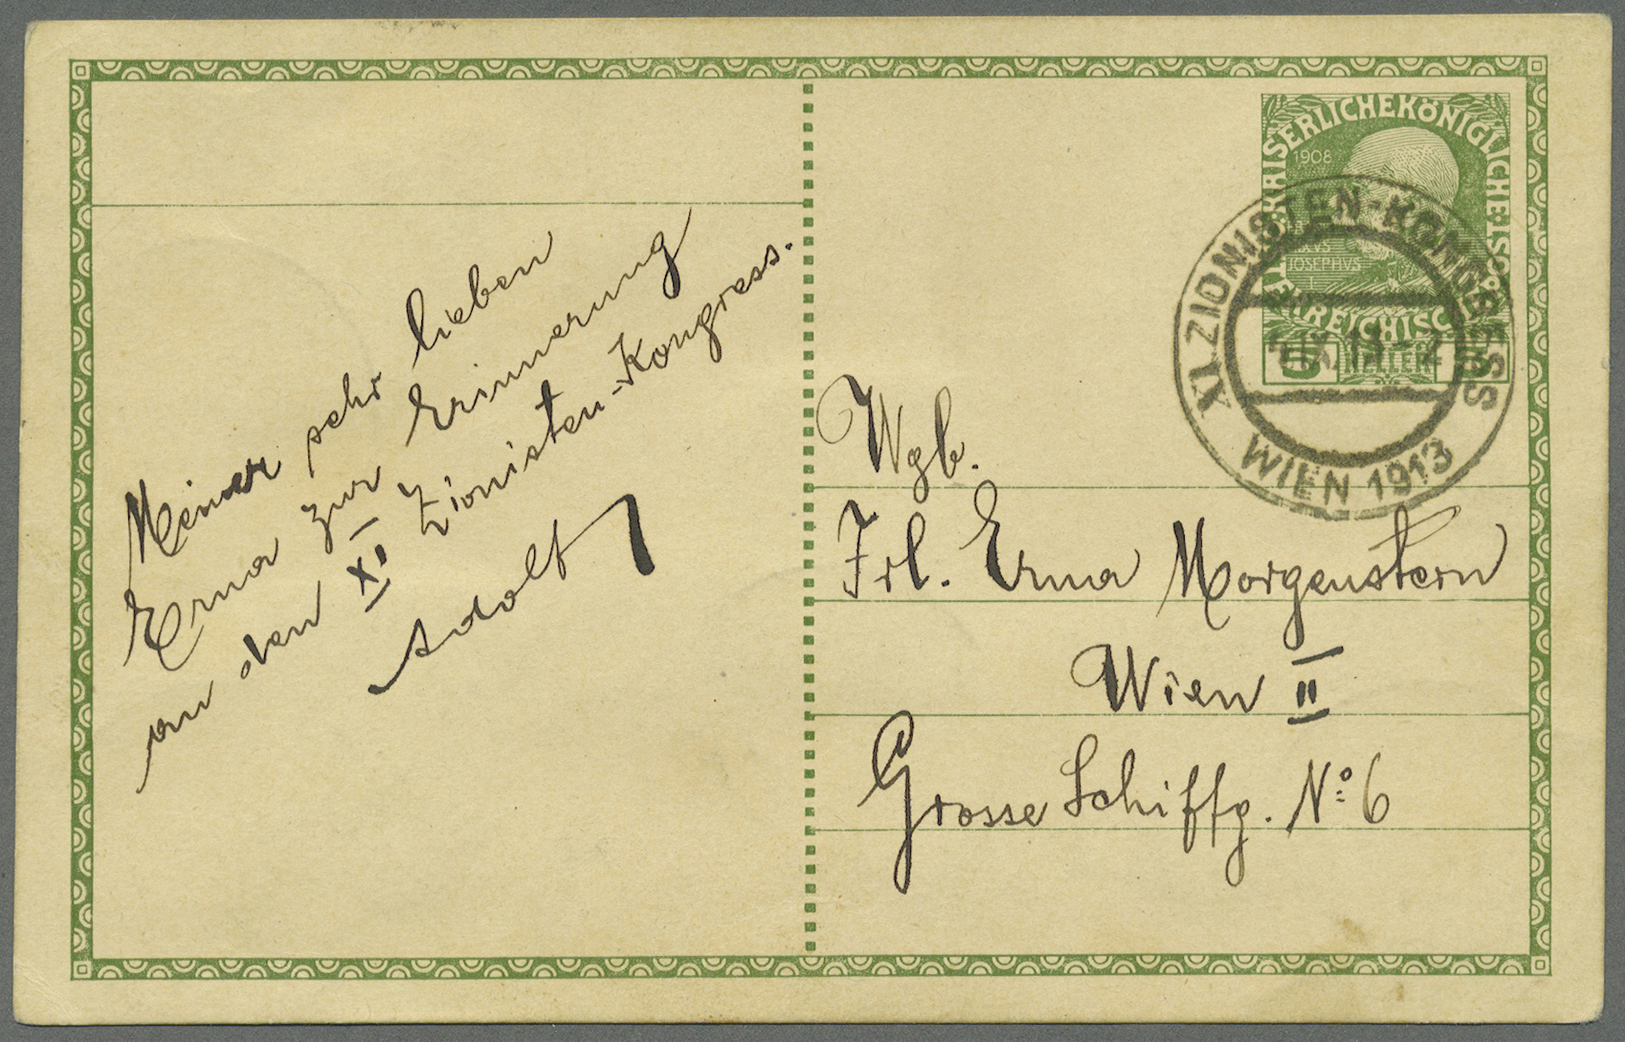 Meiner sehr lieben
Erna zur Erinnerung
an den XI Zionisten-Kongress.
Adolf
KAISERLICHE KÖNIGLICHE ÖSTERREICHISCHE POST
1908
JOSEPHVS
5 HELLER
XI. ZIONISTEN-KONGRESS
13-2
WIEN 1913
Wgb.
Frl. Erna Morgenstern
Wien II
Grosse Schiffg. No 6